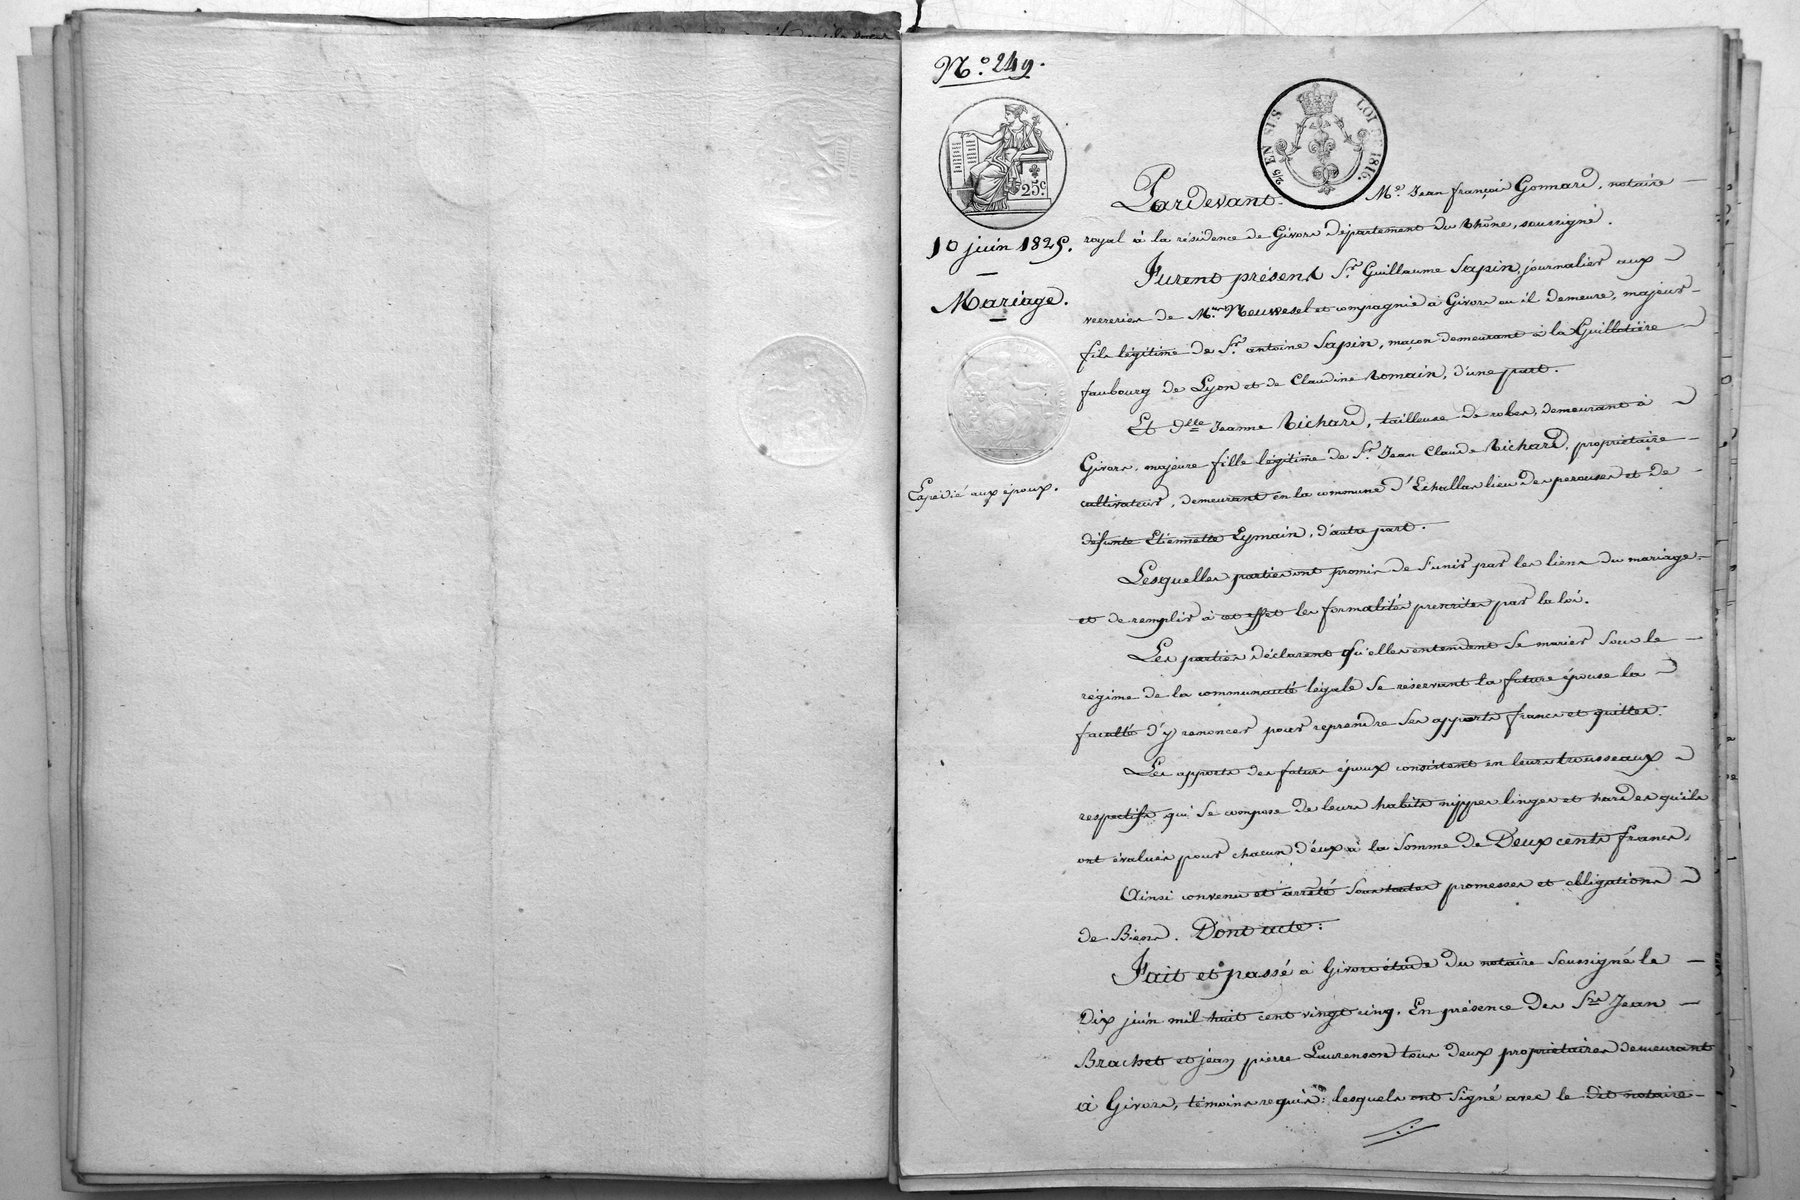 N.° 249.
25.c
2/5 EN SUS LOI DE 1816.
10 juin 1825.
Mariage.
Expédié aux époux.
Pardevant M.e Jean françois Gonnard, notaire
royal à la résidence de Givors département du Rhône, soussigné.
Furent présent S.r Guillaume Sapin, journalier aux
verreries de M.rs Neuvesel et compagnie à Givors ou il demeure, majeur
fils légitime de S.r antoine Sapin, maçon demeurant à la Guillotière
faubourg de Lyon et de Claudine Romain, d'une part.
Et D.lle Jeanne Richard, tailleuse de robes, demeurant à
Givors, majeure fille légitime de S.r Jean Claude Richard, propriétaire
cultivateur, demeurant en la commune d'Echallas lieu des perouses et de
défunte Etiennette Eymain, d'autre part.
Lesquelles parties ont promis de s'unir par les liens du mariage
et de remplir à cet effet les formalités prescrites par la loi.
Les parties déclarent qu'elles entendent se marier sous le
régime de la communauté légale se réservant la future épouse la
faculté d'y renoncer pour reprendre ses apports francs et quittes.
Les apports des futurs époux consistent en leurs trousseaux
respectifs qui se compose de leurs habits nippes linges et hardes qu'ils
ont évalués pour chacun d'eux à la somme de Deux cents francs.
Ainsi convenu et arrêté sous toutes promesses et obligations
de Biens. Dont acte:
Fait et passé à Givors étude du notaire soussigné le
Dix juin mil huit cent vingt cinq. En présence des S.rs Jean
Brachet et jean pierre Laurenson tous deux propriétaires demeurant
à Givors, témoins requis: lesquels ont signé avec le dit notaire